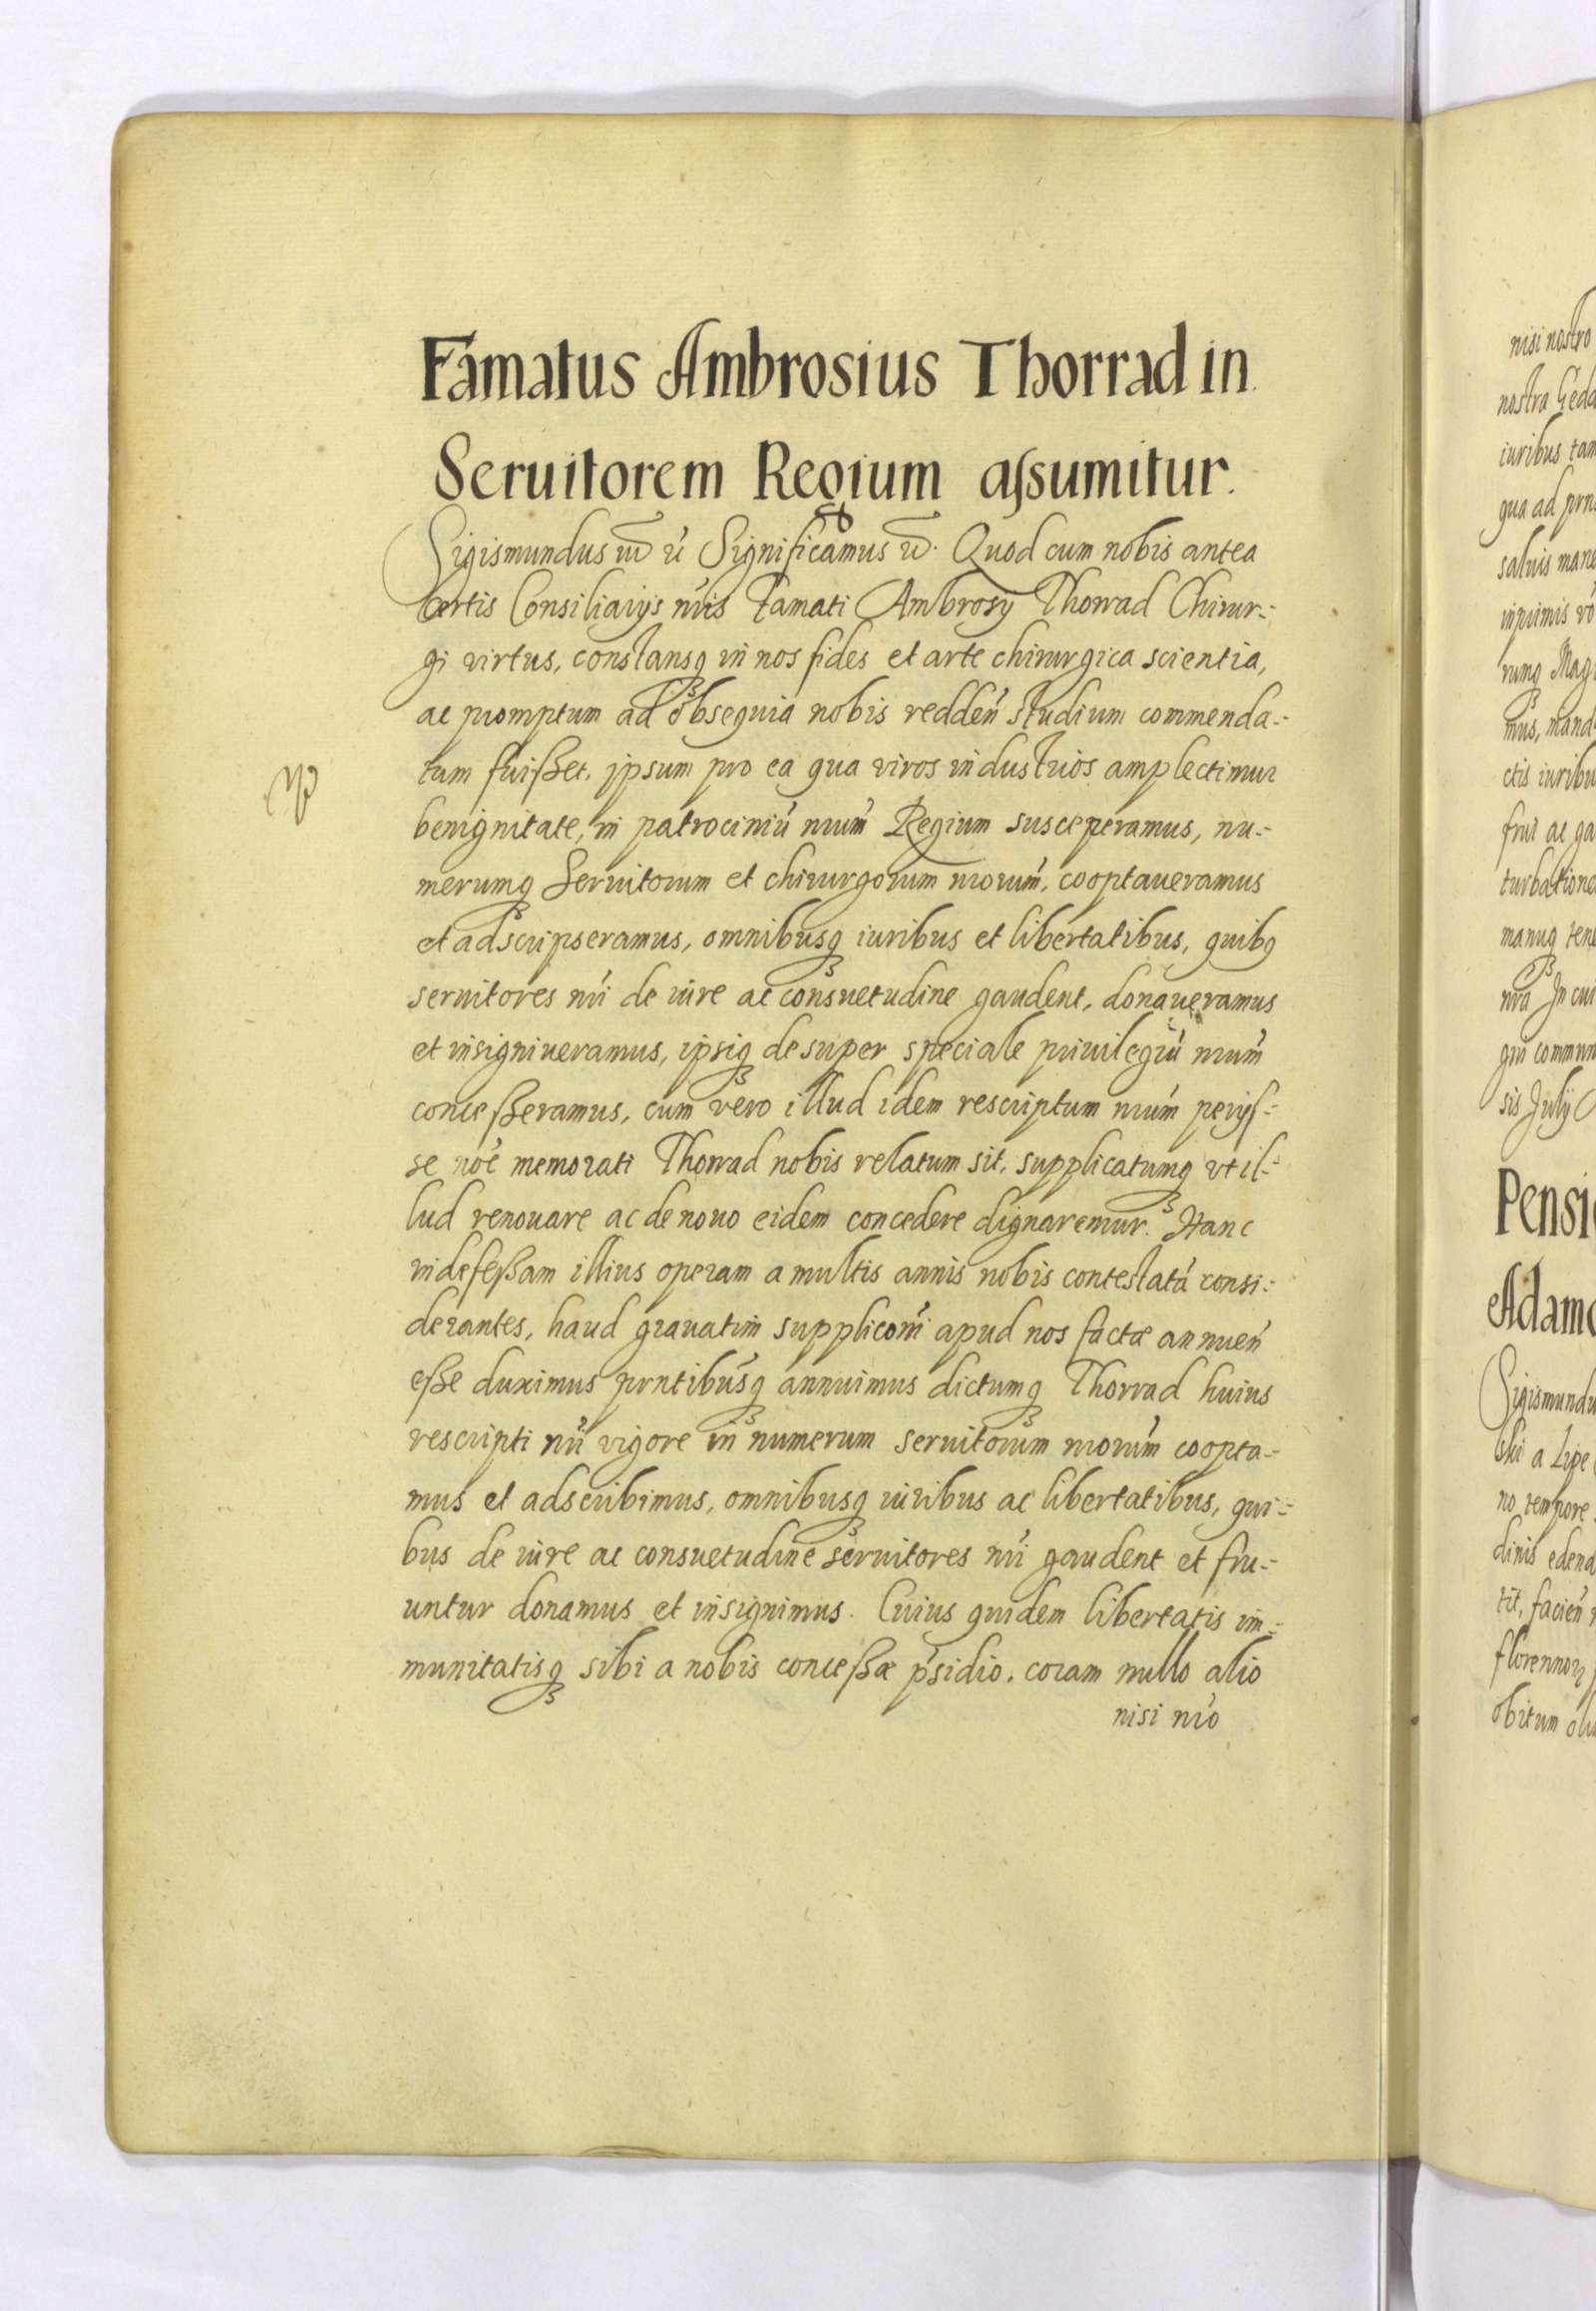 Famatus Ambrosius Thorrad in
Seruitorem Regium aſsumitur.
Sigismundus Significamus Quod cum nobis antea
certis Consiliarijs nris Famati Ambrosij Thorrad Chirur-
gi virtus, constansq in nos fides et arte chirurgica scientia,
ac promptum ad obsequia nobis redden studium commenda-
tum fuißet, ipsum pro ea qua viros industrios amplectimur
benignitate, in patrociniū nrum Regium susceperamus, nu-
merumq Seruitorum et chirurgorum nrorum, cooptaueramus
et adscripseramus, omnibusq iuribus et libertatibus, quibq
seruitores nri de iure ac consuetudine gaudent, donaueramus
et insigniueramus, ipsiq desuper speciale priuilegiū nrum
conceßeramus, cum vero illud idem rescriptum nrum perijſ-
se noe memorati Thorrad nobis relatum sit, supplicatumq vt il-
lud renouare ac de nouo eidem concedere dignaremur. Hanc
indefeßam illius operam a multis annis nobis contestatā consi-
derantes, haud grauatim suppliconi apud nos factæ annuen
eße duximus prntibusq annuimus dictumq Thorrad huius
rescripti nri vigore in numerum seruitorum nrorum coopta-
mus et adscribimus, omnibusq iuribus ac libertatibus, qui-
bus de iure ac consuetudine seruitores nri gaudent et fru-
untur donamus et insignimus. Cuius quidem libertatis im-
munitatisq sibi a nobis conceßæ psidio, coram nullo alio
nisi nro
nisi nostro
nostra Geda
iuribus tam
qua ad prns
saluis mane
inprimis
rumq Mag
mus, mand
ctis iuribu
frui ac ga
turbatione
manuq
nra In cui
gni commun
sis Julij
Pensi
Adamo
Sigismundu
a Lipe
no tempore
dinis edend
facien
florennor
obitum